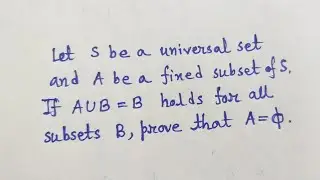 Let S be a universal set
and A be a fixed subset of S.
If A∪B = B holds for all
subsets B, prove that A=ϕ.